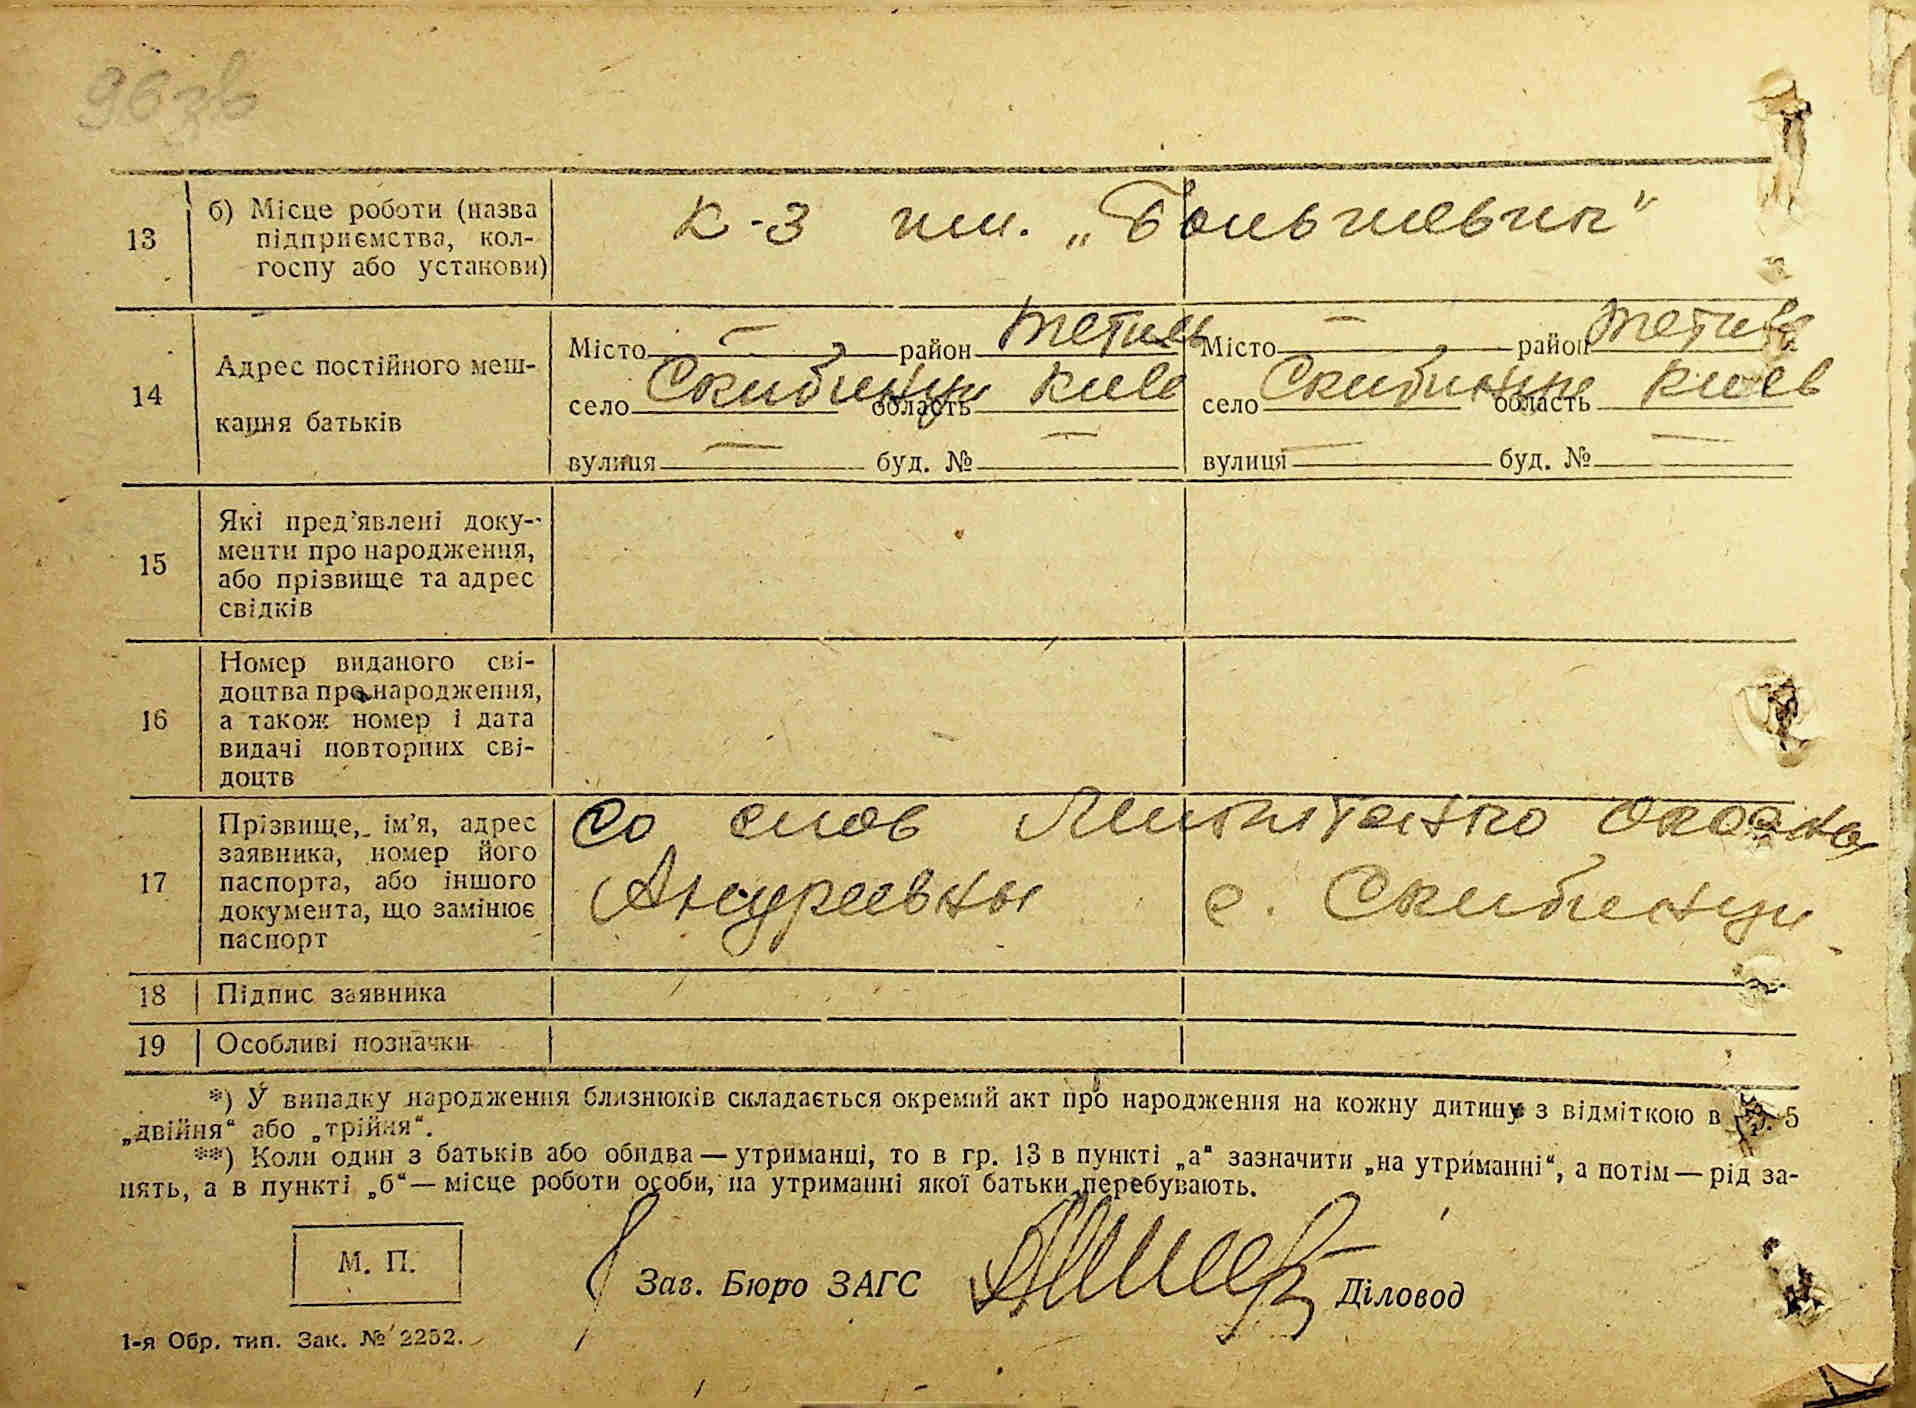 96 зв
13 б) Місце роботи (назва
підприємства, кол-
госпу або установи)
к-з им. „Большевик“
14 Адрес постійного меш-
кання батьків
Місто — район Тетиев Місто — район Тетиев
село Скибинци область Киев село Скибинци область Киев
вулиця — буд. № — вулиця — буд. № —
15 Які пред’явлені доку-
менти про народження,
або прізвище та адрес
свідків
16 Номер виданого сві-
доцтва про народження,
а також номер і дата
видачі повторних сві-
доцтв
17 Прізвище, ім’я, адрес
заявника, номер його
паспорта, або іншого
документа, що замінює
паспорт
Со слов
Андреевны с. Скибинци
18 Підпис заявника
19 Особливі позначки
*) У випадку народження близнюків складається окремий акт про народження на кожну дитину з відміткою в гр. 5
„двійня“ або „трійня“.
**) Коли один з батьків або обидва — утриманці, то в гр. 13 в пункті „а“ зазначити „на утриманні“, а потім — рід за-
нять, а в пункті „б“ — місце роботи особи, на утриманні якої батьки перебувають.
М. П.
Зав. Бюро ЗАГС Діловод
1-я Обр. тип. Зак. № 2252.